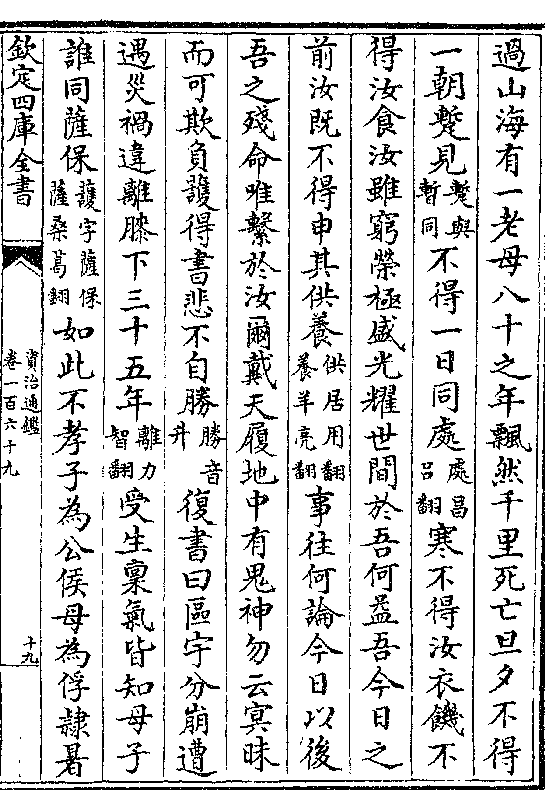 過山海有一老母八十之年飄然千里死亡旦夕不得
一朝蹔見蹔與暫同不得一日同處處昌呂翻寒不得汝衣饑不
得汝食汝雖窮榮極盛光耀世間於吾何益吾今日之
前汝既不得申其供養供居用翻養羊亮翻事往何論今日以後
吾之殘命唯繫於汝爾戴天履地中有鬼神勿云冥昧
而可欺負䕶得書悲不自勝勝音升復書曰區宇分崩遭
遇災禍違離膝下三十五年離力智翻受生稟氣皆知母子
誰同薩保䕶字薩保薩桑葛翻如此不孝子為公侯母為俘隷暑
欽定四庫全書
資治通鑑
卷一百六十九
十九